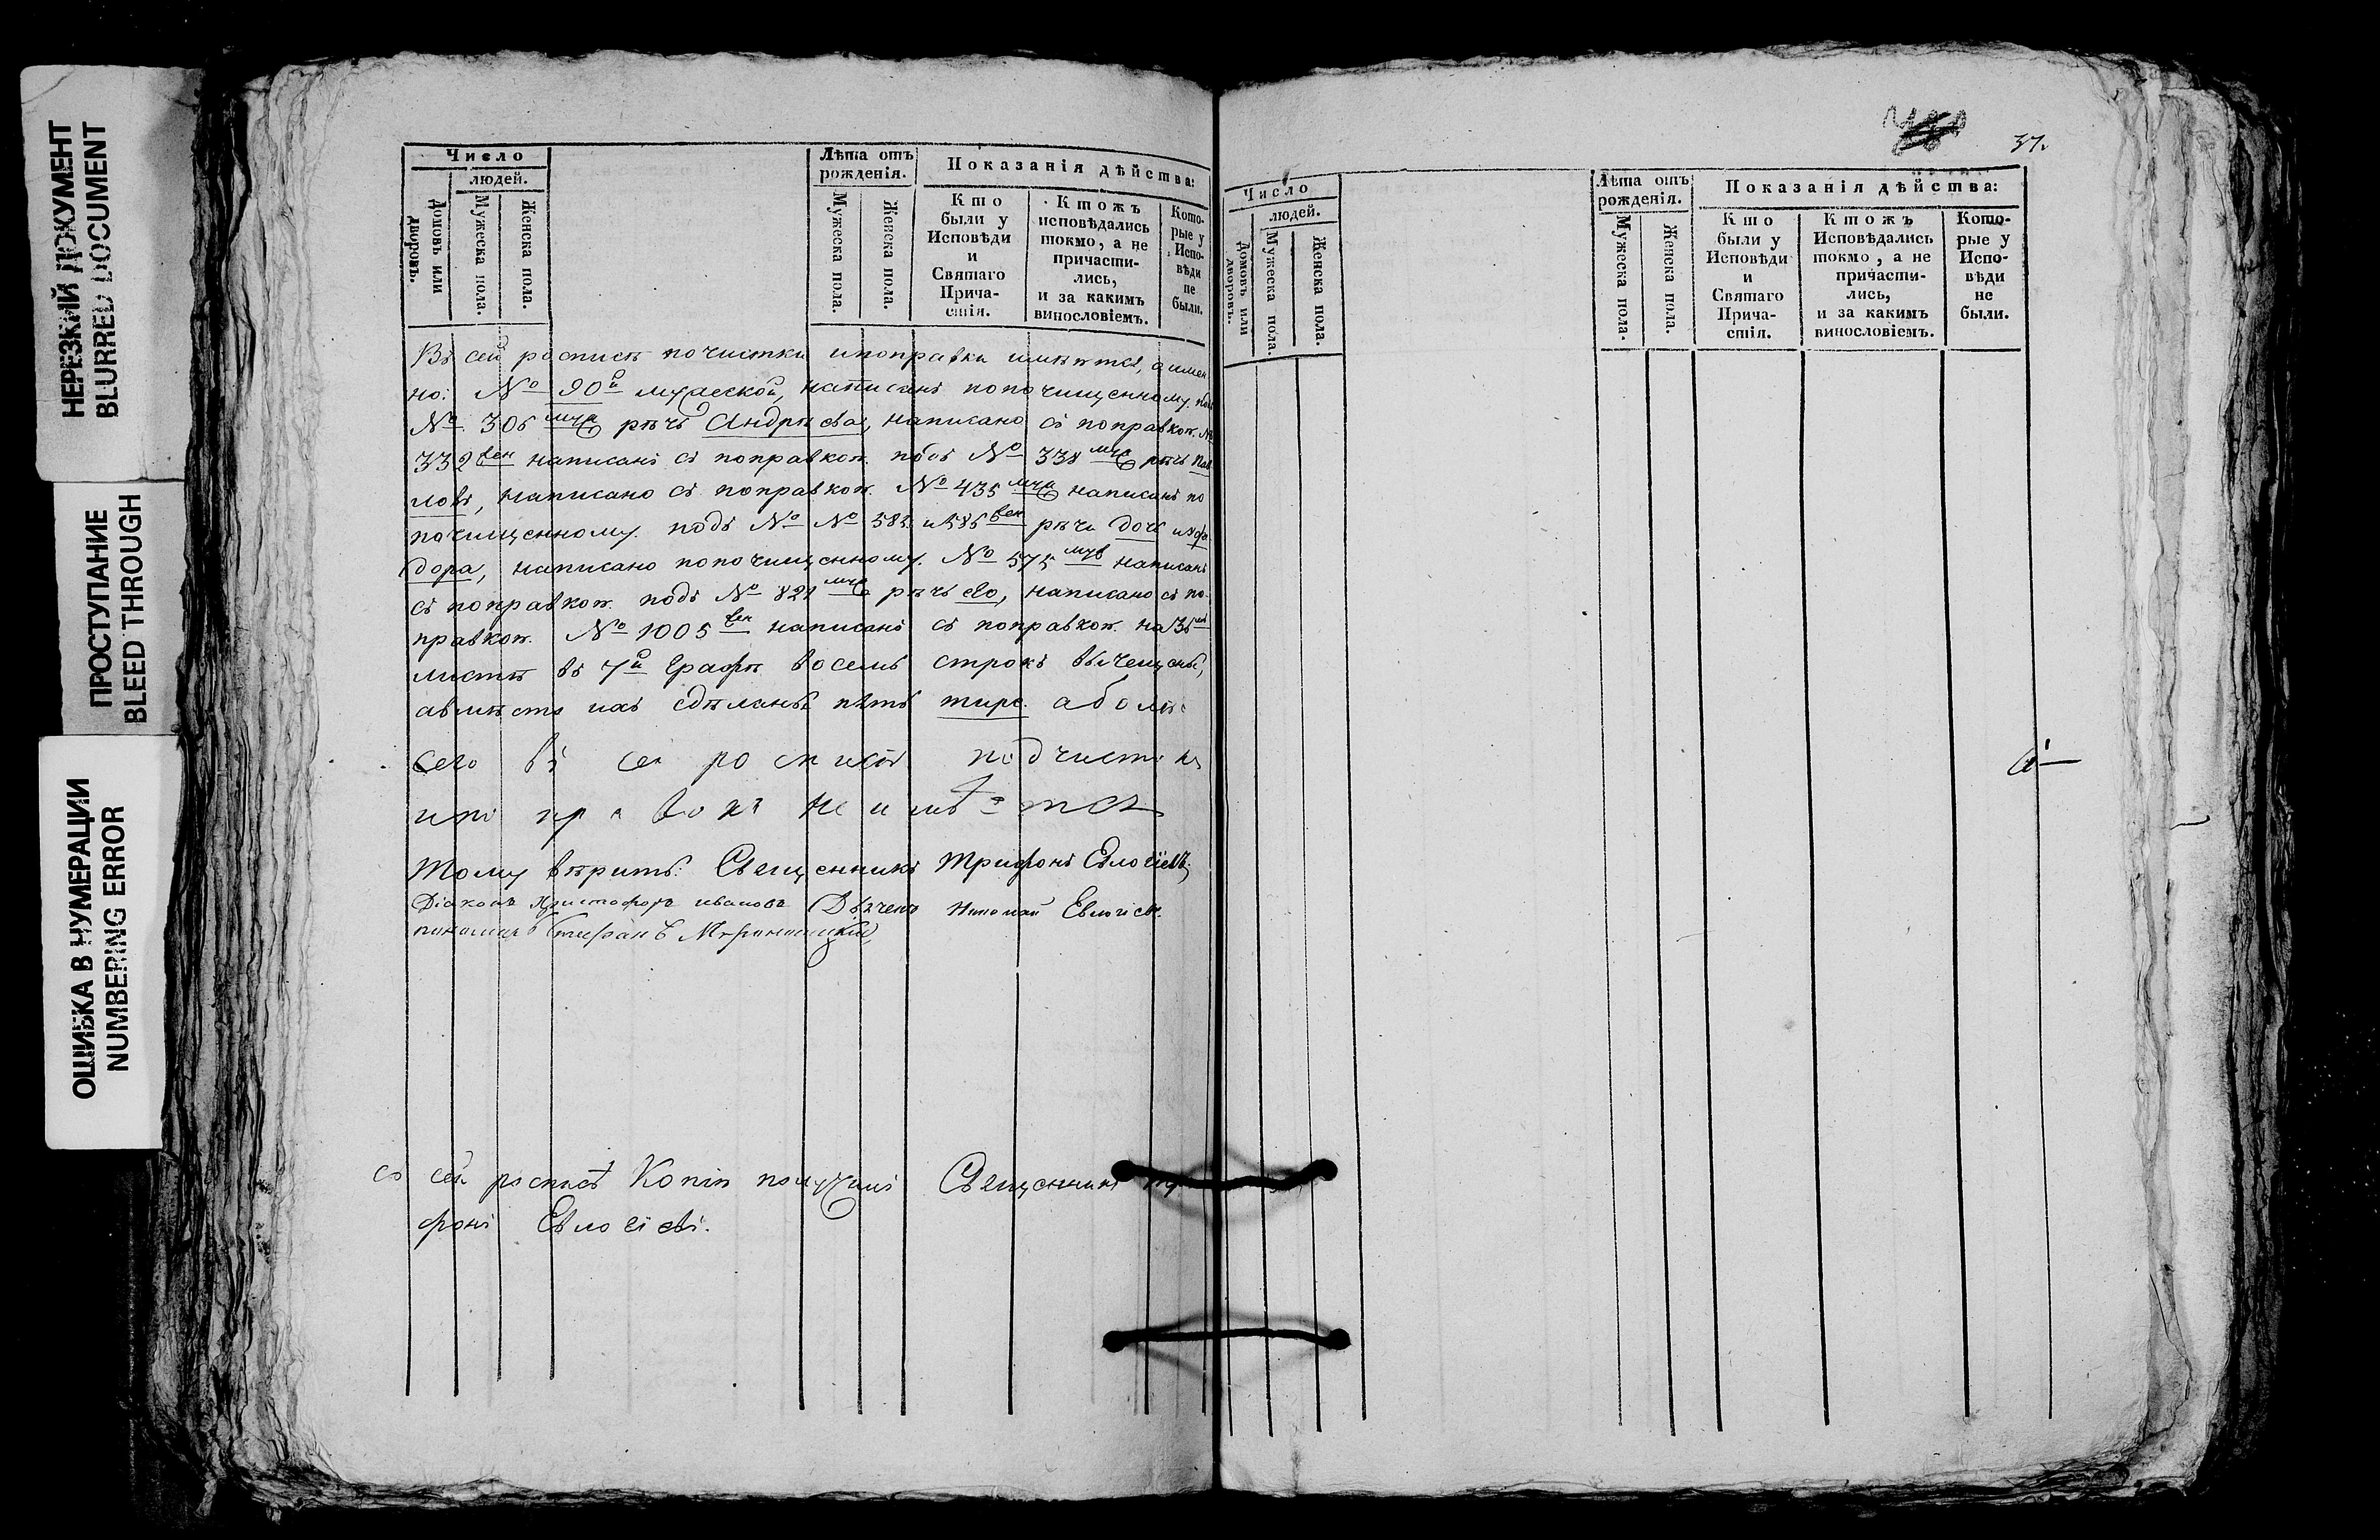 НЕРЕЗКИЙ ДОКУМЕНТ
BLURRED DOCUMENT
ПРОСТУПАНИЕ
BLEED THROUGH
ОШИБКА В НУМЕРАЦИИ
NUMBERING ERROR
Число
людей.
Домовъ или дворовъ.
Мужеска пола.
Женска пола.
Лѣта отъ
рожденія.
Мужеска пола.
Женска пола.
Показанія дѣйства:
Кто
были у
Исповѣди
и
Святаго
Прича-
стія.
Ктожъ
исповѣдались
токмо, а не
причасти-
лись,
и за какимъ
винословіемъ.
Кото-
рые у
Испо-
вѣди
не
были.
Въ сей росписѣ почистки и поправки имѣются, а имен
но: № 90й мужеской, написанъ по почищенному. подъ
№ 306 рѣчь Андрѣева, написано съ поправкою. №
332 жен написанъ съ поправкою. подъ № 338 рѣчь Пав
ловъ, написано съ поправкою. № 435 написанъ по
почищенному. подъ № № 585 и 586 жен рѣчи дочь
дора, написано по почищенному. № 575 муж написанъ
съ поправкою. подъ № 821 рѣчь его, написано съ по-
правкою. № 1005 жен написанъ съ поправкою. на 36
листѣ въ 7й графѣ восемь строкъ вычещены,
а вмѣсто ихъ сдѣланы пять тире. а болѣе
сего въ сей росписи подчистки
и поправокъ не имѣется
Тому вѣритъ: Священникъ Трифонъ Евлогіевъ,
Діаконъ Христофоръ Ивановъ Дьячекъ Николай Евлогіевъ.
пономарь Стефанъ
съ сей росписѣ Копію получилъ Священникъ Три
фонъ Евлогіевъ.
37.
Число
людей.
Домовъ или дворовъ.
Мужеска пола.
Женска пола.
Лѣта отъ
рожденія.
Мужеска пола.
Женска пола.
Показанія дѣйства:
Кто
были у
Исповѣди
и
Святаго
Прича-
стія.
Ктожъ
Исповѣдались
токмо, а не
причасти-
лись,
и за какимъ
винословіемъ.
Кото-
рые у
Испо-
вѣди
не
были.